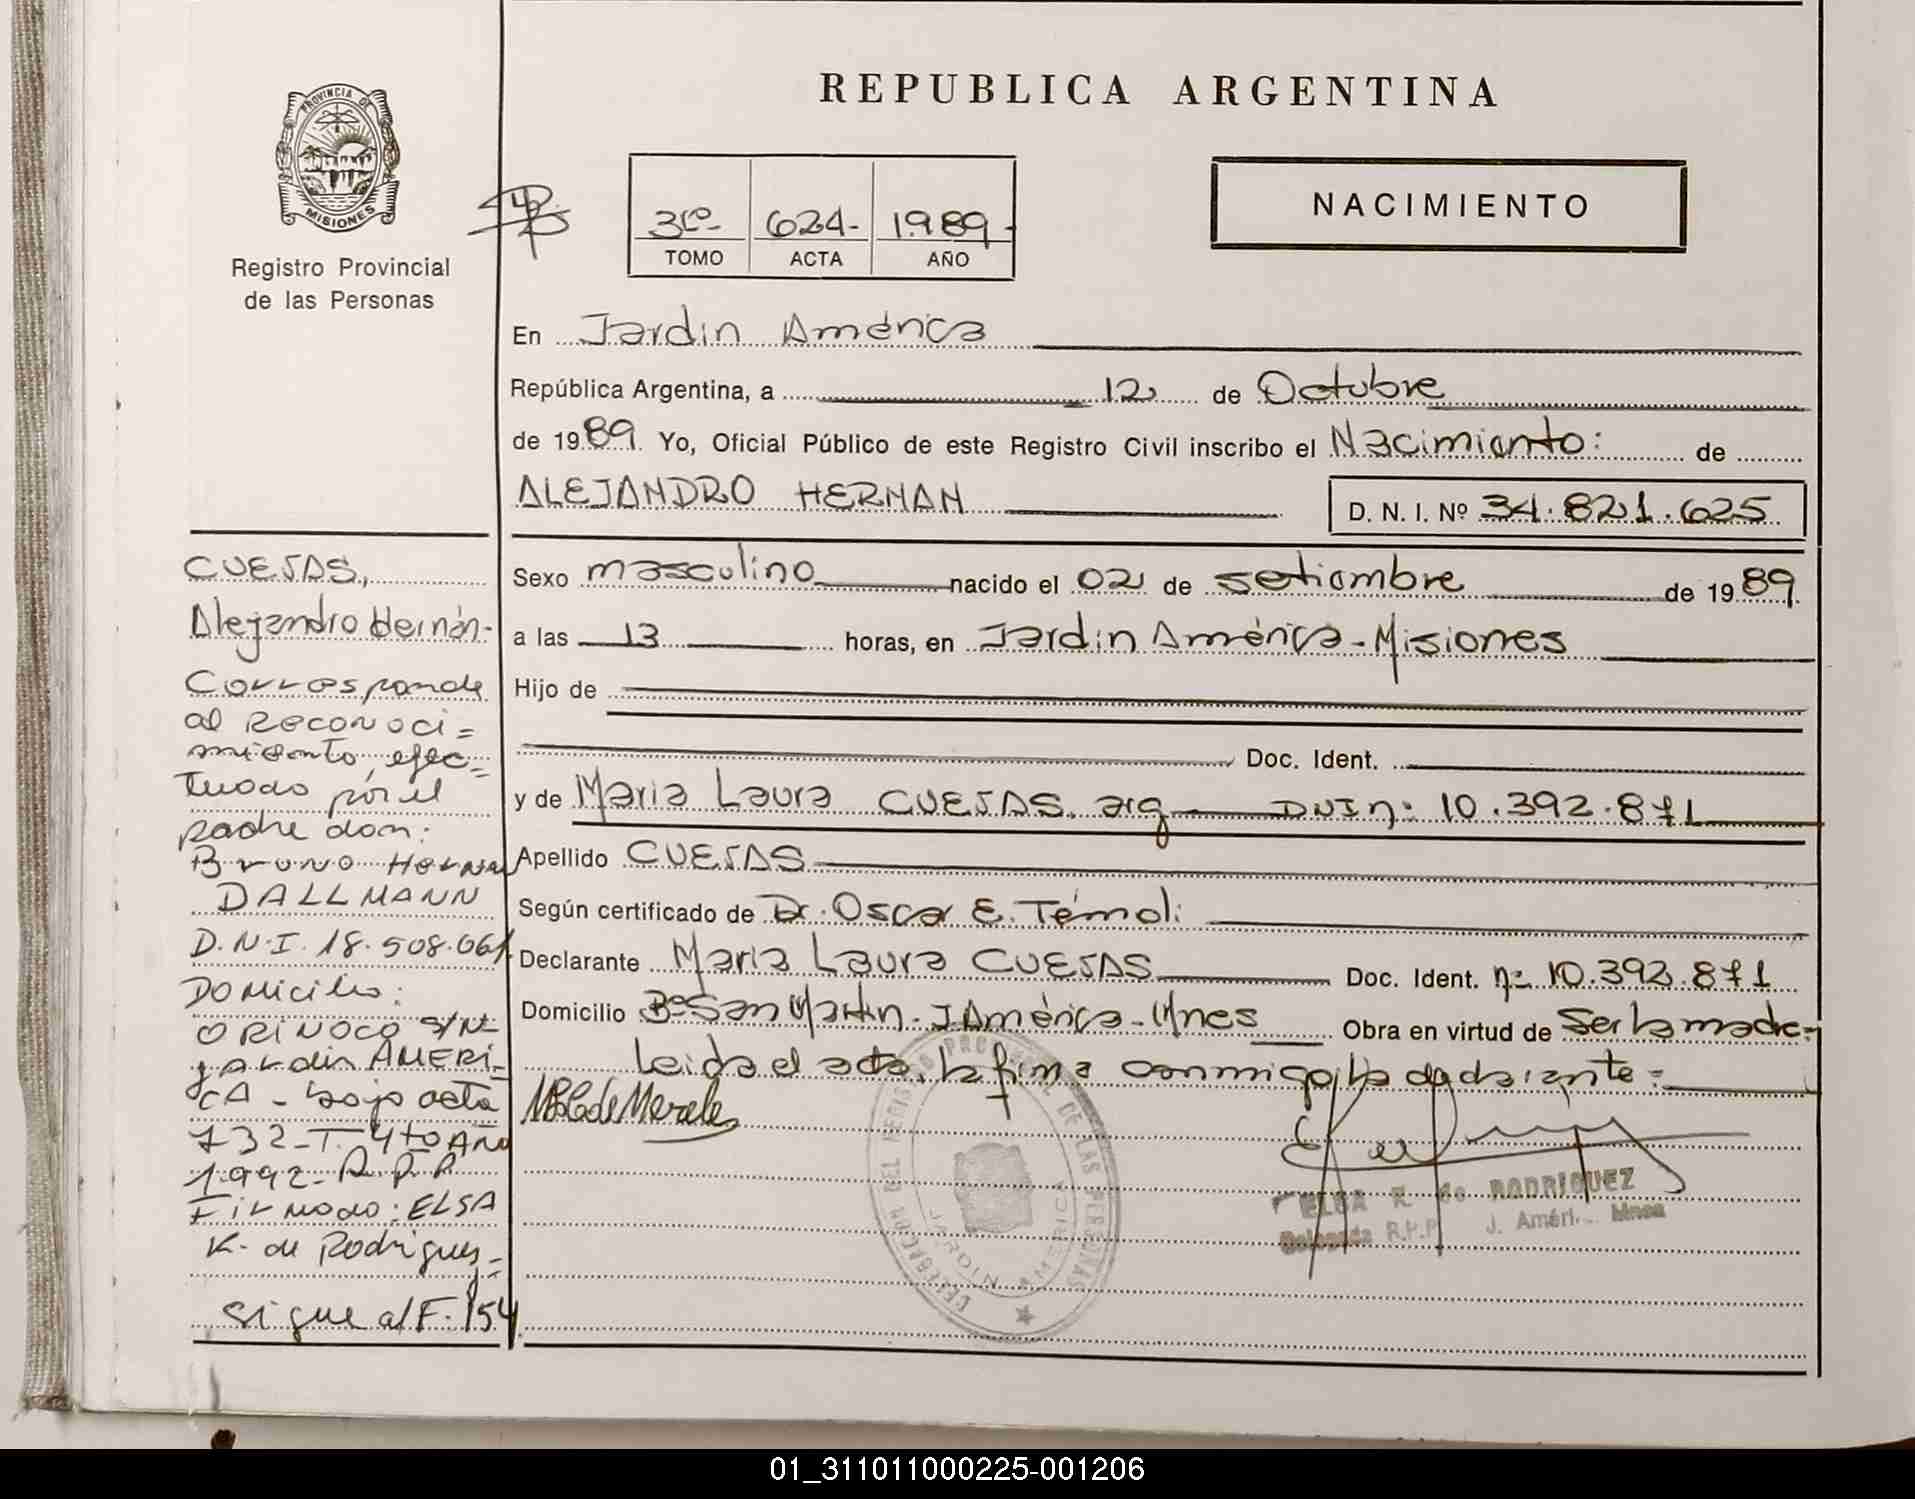 REPUBLICA ARGENTINA
PROVINCIA DE
MISIONES
Registro Provincial
de las Personas
3ro- 624- 1989-
TOMO ACTA AÑO
NACIMIENTO
En Jardin América
República Argentina, a 12 de Octubre
de 1989. Yo, Oficial Público de este Registro Civil inscribo el Nacimiento: de
ALEJANDRO HERNAN
D. N. I. Nº 34.821.625
Sexo masculino nacido el 02 de setiembre de 1989
a las 13 horas, en Jardin América-Misiones
Hijo de
Doc. Ident.
y de Maria Laura CUEJAS. arg DNIn: 10.392.871
Apellido CUEJAS
Según certificado de Dr. Oscar E. Témoli
Declarante Maria Laura CUEJAS Doc. Ident. n: 10.392.871
Domicilio Bº San Martin. J.América-Mnes Obra en virtud de Ser la madre-
Leida el acta, la firma conmigo, la declarante=
ELSA K. de RODRIGUEZ
Delegada R.P.P. J. Améri. Mnes
JARDIN AMERICA
CUEJAS,
Alejandro Hernán-
Corresponde
al reconoci=
miento, efec=
tuado por el
padre don:
Bruno Hernan
DALLMANN
D.N.I. 18.508.061
Domicilio:
ORINOCO S/Nº
Jardin AMERI=
CA - bajo acta
732-T. 4to Año
1.992- R.P.P.
Firmado: ELSA
K. de Rodrigues=
sigue al F. 154
01_311011000225-001206